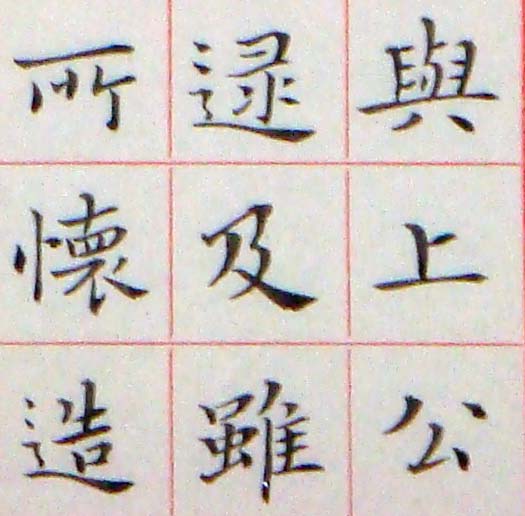 與上公
逯及雖
所懷造